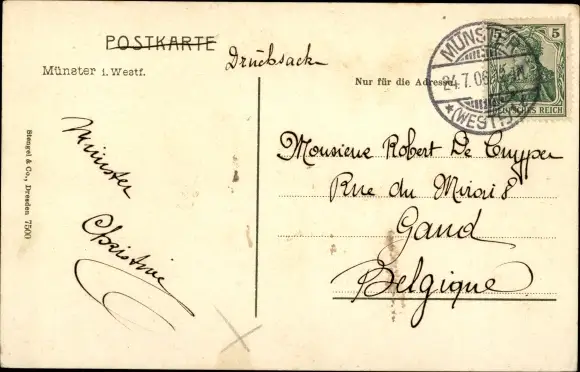 POSTKARTE
Drucksache
Münster i. Westf.
Nur für die Adresse.
MÜNSTER
24.7.06
*(WESTF.)
5
DEUTSCHES REICH
Monsieur Robert De Cuyper
Rue du Miroir 8
Gand
Belgique
Münster
Christine
Stengel & Co., Dresden 7500